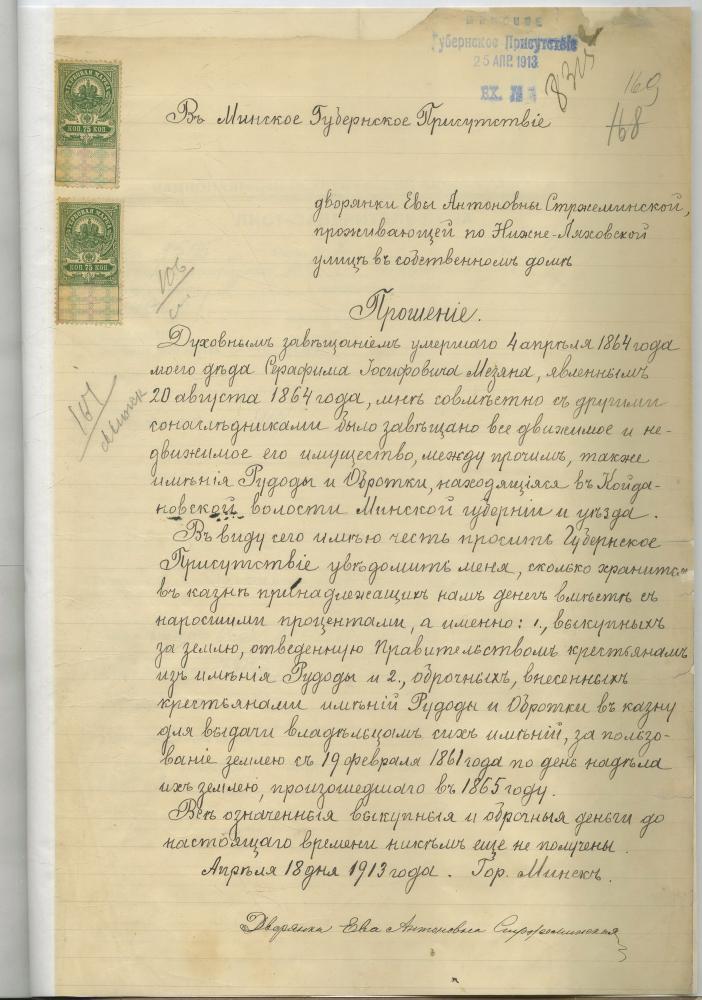 МИНСКОЕ
Губернское Присутствіе
25 АПР. 1913
ВХ. №
169
168
ГЕРБОВАЯ МАРКА
КОП. 75 КОП.
ГЕРБОВАЯ МАРКА
КОП. 75 КОП.
Въ Минское Губернское Присутствіе
дворянки Евы Антоновны Стржеминской,
проживающей по Нижне-Ляховской
улицѣ въ собственномъ домѣ
Прошеніе.
Духовнымъ завѣщаніемъ умершаго 4 апрѣля 1864 года
моего дѣда Серафима Іосифовича Мезяна, явленнымъ
20 августа 1864 года, мнѣ совмѣстно съ другими
сонаслѣдниками было завѣщано все движимое и не-
движимое его имущество, между прочимъ, также
имѣнія Рудоды и Обротки, находящіяся въ Койда-
новской волости Минской губерніи и уѣзда.
Въ виду сего имѣю честь просить Губернское
Присутствіе увѣдомить меня, сколько хранится
въ казнѣ принадлежащихъ намъ денегъ вмѣстѣ съ
наросшими процентами, а именно: 1., выкупныхъ
за землю, отведенную Правительствомъ крестьянамъ
изъ имѣнія Рудоды и 2., оброчныхъ, внесенныхъ
крестьянами имѣній Рудоды и Обротки въ казну
для выдачи владѣльцамъ сихъ имѣній, за пользо-
ваніе землею съ 19 февраля 1861 года по день надѣла
ихъ землею, произошедшаго въ 1865 году.
Всѣ означенныя выкупныя и оброчныя деньги до
настоящаго времени никѣмъ еще не получены.
Апрѣля 18 дня 1913 года. Гор. Минскъ.
Дворянка Ева Антоновна Стржеминская